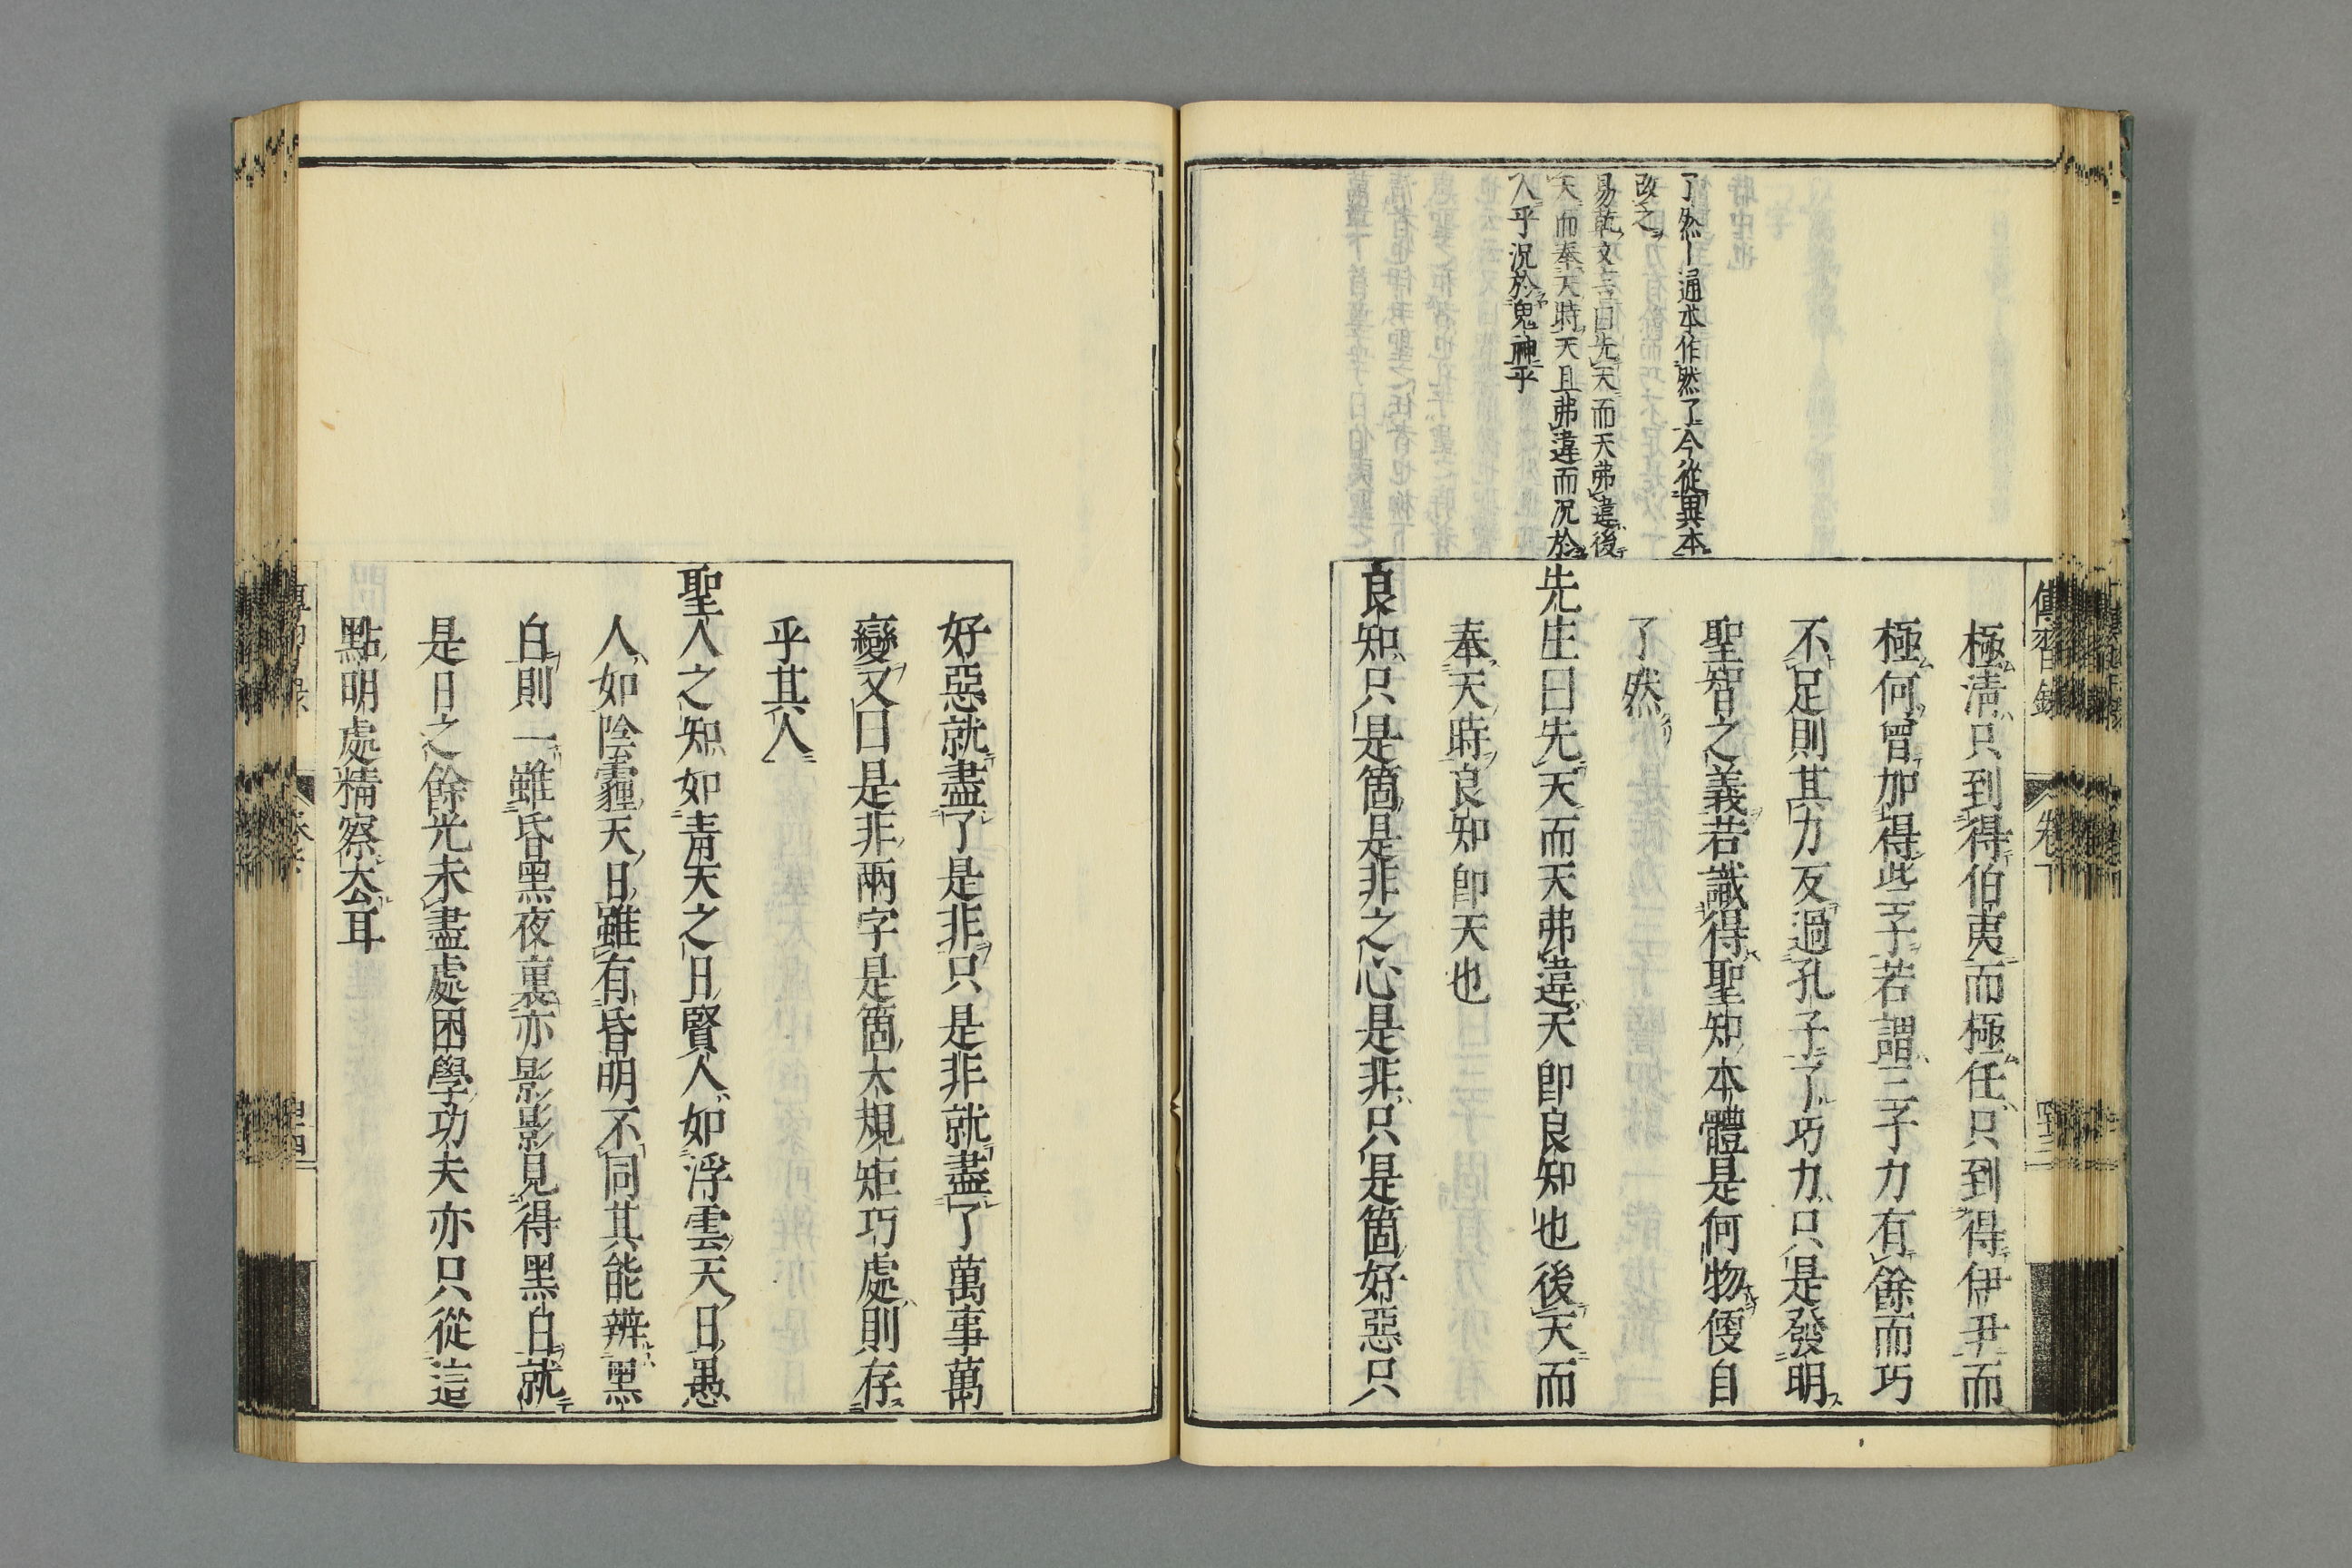 了然ー通本作然了今從異本
改之
易乾文言曰先天而天弗違後
天而奉天時天且弗違而況於
人乎況於鬼神乎
傳習錄
卷下
極淸只到得伯夷而極任只到得伊尹而
極何曾加得些子若謂三子力有餘而巧
不足則其力反過孔子了巧力只是發明
聖智之義若識得聖知本體是何物便自
了然
先生曰先天而天弗違天卽良知也後天而
奉天時良知卽天也
良知只是箇是非之心是非只是箇好惡只
好惡就盡了是非只是非就盡了萬事萬
變又曰是非兩字是箇大規矩巧處則存
乎其人
聖人之知如青天之日賢人如浮雲天日愚
人如陰霾天日雖有昏明不同其能辨黑
白則一雖昏黑夜裏亦影影見得黑白就
是日之餘光未盡處困學功夫亦只從這
點明處精察去耳